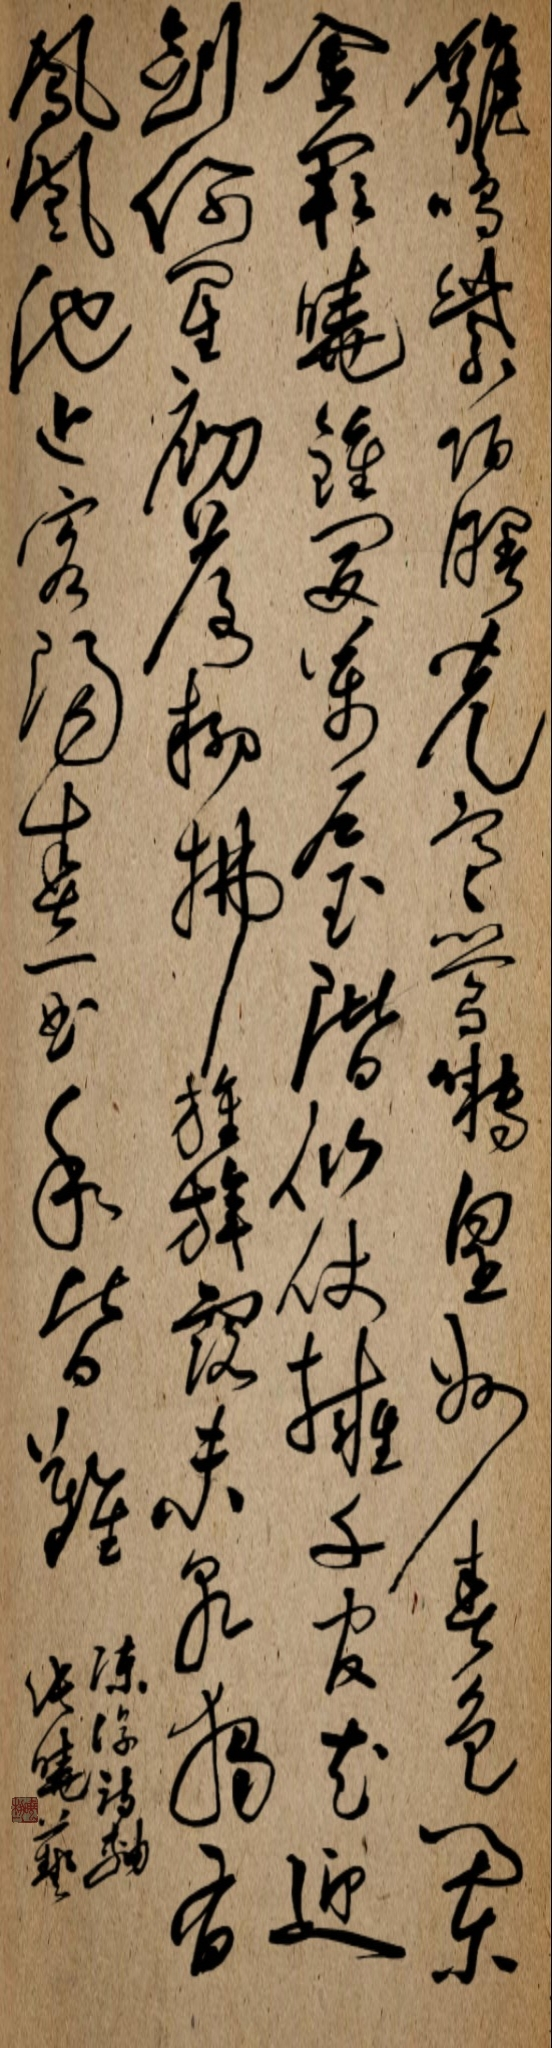 雞鳴紫陌曙光寒鶯囀皇州春色闌
金闕曉鐘開萬戶玉階仙仗擁千官花迎
劍佩星初落柳拂旌旗露未乾獨有
鳳凰池上客陽春一曲和皆難
陳淳詩軸
張曉藝